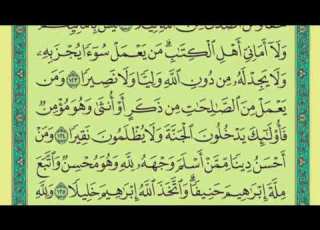 لَّيْسَ بِأَمَانِيِّكُمْ
وَلَآ أَمَانِيِّ أَهْلِ ٱلْكِتَٰبِ ۗ مَن يَعْمَلْ سُوٓءًا يُجْزَ بِهِۦ
وَلَا يَجِدْ لَهُۥ مِن دُونِ ٱللَّهِ وَلِيًّا وَلَا نَصِيرًا ١٢٣ وَمَن
يَعْمَلْ مِنَ ٱلصَّٰلِحَٰتِ مِن ذَكَرٍ أَوْ أُنثَىٰ وَهُوَ مُؤْمِنٌ
فَأُو۟لَٰٓئِكَ يَدْخُلُونَ ٱلْجَنَّةَ وَلَا يُظْلَمُونَ نَقِيرًا ١٢٤ وَمَنْ
أَحْسَنُ دِينًا مِّمَّنْ أَسْلَمَ وَجْهَهُۥ لِلَّهِ وَهُوَ مُحْسِنٌ وَٱتَّبَعَ
مِلَّةَ إِبْرَٰهِيمَ حَنِيفًا ۗ وَٱتَّخَذَ ٱللَّهُ إِبْرَٰهِيمَ خَلِيلًا ١٢٥ وَلِلَّهِ